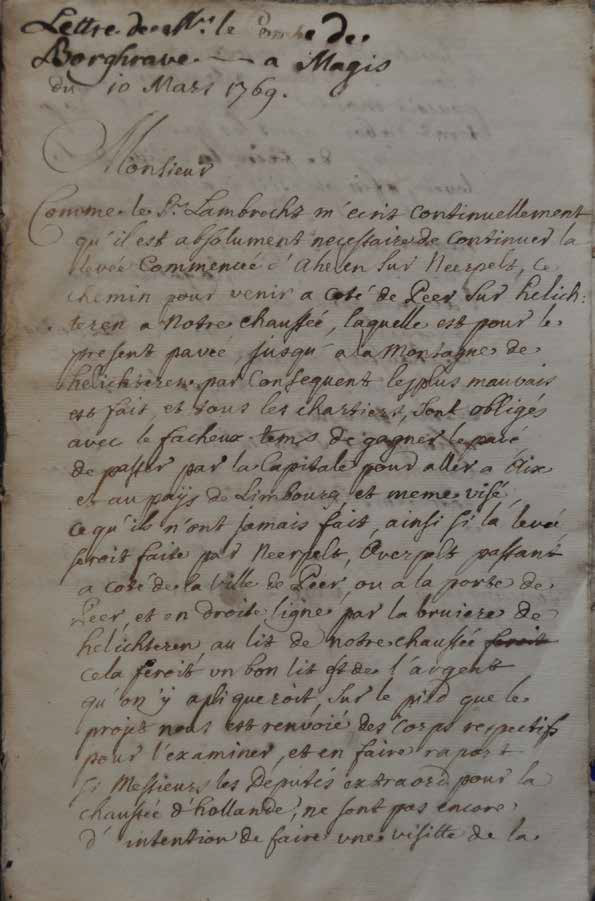 Lettre de Mr. le Comte de
Borghrave — a Magis
du 10 Mars 1769.
Monsieur
Comme le Sr. Lambrechts m'ecrit continuellement
qu'il est absolument necessaire de continuer la
levée commencée d'Ahelen sur Neerpelt, ce
chemin pour venir a coté de Peer sur helich:
teren a notre chaussée, laquelle est pour le
present paveé jusqu'a la Montagne de
helichteren par consequent le plus mauvais
est fait, et tous les chartiers, sont obligés
avec le facheux tems de gagner le pavé
de passer par la Capitale pour aller a Aix
et au païs de Limbourg et meme visé,
ce qu'ils n'ont jamais fait, ainsi si la levé
seroit faite par Neerpelt, Overpelt passant
a coté de la ville de Peer, ou a la porte de
Peer, et en droite ligne par la bruiere de
helichteren, au lit de notre chaussée
cela feroit un bon lit et de l'argent
qu'on y apliqueroit, sur le pied que le
projet nous est renvoié des Corps respectifs
pour l'examiner, et en faire raport
si Messieurs les Deputés extraord pour la
chaussée d'hollande, ne sont pas encore
d'intention de faire une visitte de la